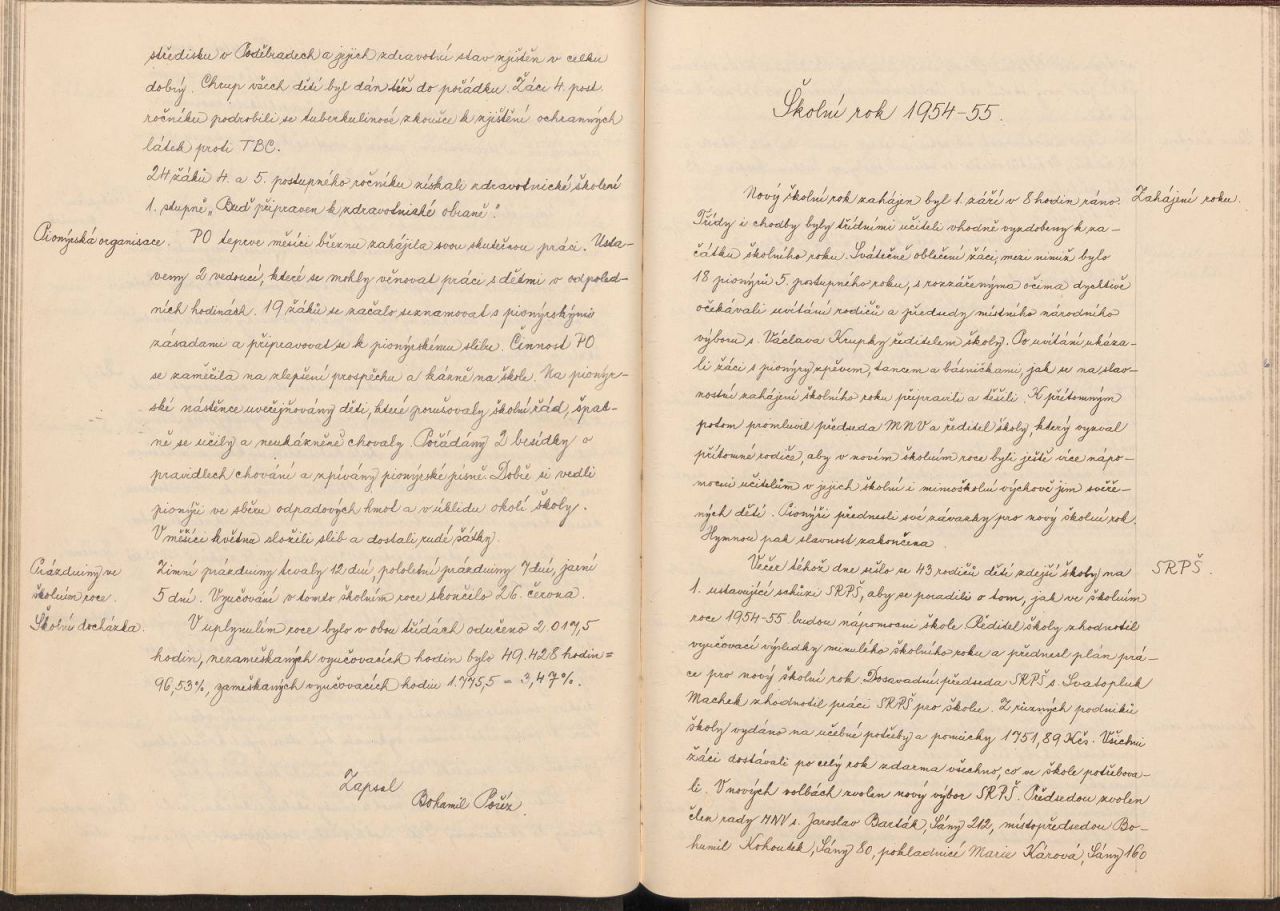 středisku v Poděbradech a jejich zdravotní stav zjištěn v celku
dobrý. Chrup všech dětí byl dán též do pořádku. Žáci 4. post.
ročníku podrobili se tuberkulinové zkoušce k zjištění ochranných
látek proti TBC.
24 žáků 4. a 5. postupného ročníku získali zdravotnické školení
1. stupně „Buď připraven k zdravotnické obraně".
Pionýrská organisace. PO teprve měsíci březnu zahájila svou skutečnou práci. Usta-
veny 2 vedoucí, které se mohly věnovat práci s dětmi v odpoled-
ních hodinách. 19 žáků se začalo seznamovat s pionýrskými
zásadami a připravovat se k pionýrskému slibu. Činnost PO
se zaměřila na zlepšení prospěchu a kázně na škole. Na pionýr-
ské nástěnce uveřejňovány děti, které porušovaly školní řád, špat-
ně se učily a neukázněně chovaly. Pořádány 2 besídky o
pravidlech chování a zpívány pionýrské písně. Dobře si vedli
pionýři ve sběru odpadových hmot a v úklidu okolí školy.
V měsíci květnu složili slib a dostali rudé šátky.
Prázdniny ve školním roce. Zimní prázdniny trvaly 12 dní, pololetní prázdniny 7 dní, jarní
5 dní. Vyučování v tomto školním roce skončilo 26. června.
Školní docházka. V uplynulém roce bylo v obou třídách odučeno 2.017,5
hodin, nezameškaných vyučovacích hodin bylo 49.428 hodin =
96,53%, zameškaných vyučovacích hodin 1.775,5 = 3,47%.
Zapsal
Bohumil Pořéz
Školní rok 1954-55.
Nový školní rok zahájen byl 1. září v 8 hodin ráno. Zahájení roku.
Třídy i chodby byly třídními učiteli vhodně vyzdobeny k za-
čátku školního roku. Svátečně oblečení žáci, mezi nimiž bylo
18 pionýrů 5. postupného roku, s rozzářenýma očima dychtivě
očekávali uvítání rodičů a předsedy místního národního
výboru s. Václava Krupky ředitelem školy. Po uvítání ukáza-
li žáci s pionýry zpěvem, tancem a básničkami, jak se na slav-
nostní zahájení školního roku připravili a těšili. K přítomným
potom promluvil předseda MNV a ředitel školy, který vyzval
přítomné rodiče, aby v novém školním roce byli ještě více nápo-
mocni učitelům v jejich školní i mimoškolní výchově jim svěře-
ných dětí. Pionýři přednesli své závazky pro nový školní rok.
Hymnou pak slavnost zakončena.
Večer téhož dne sešlo se 43 rodičů dětí zdejší školy na SRPŠ.
1. ustavující schůzi SRPŠ, aby se poradili o tom, jak ve školním
roce 1954-55 budou nápomocni škole. Ředitel školy zhodnotil
vyučovací výsledky minulého školního roku a přednesl plán prá-
ce pro nový školní rok. Dosavadní předseda SRPŠ s. Svatopluk
Machek zhodnotil práci SRPŠ pro školu. Z různých podniků
školy vydáno na učební potřeby a pomůcky 1751,89 Kčs. Všichni
žáci dostávali po celý rok zdarma všechno, co ve škole potřebova-
li. V nových volbách zvolen nový výbor SRPŠ. Předsedou zvolen
člen rady MNV s. Jaroslav Barták, Sány 212, místopředsedou Bo-
humil Kohoutek, Sány 80, pokladnicí Marie Kárová, Sány 160